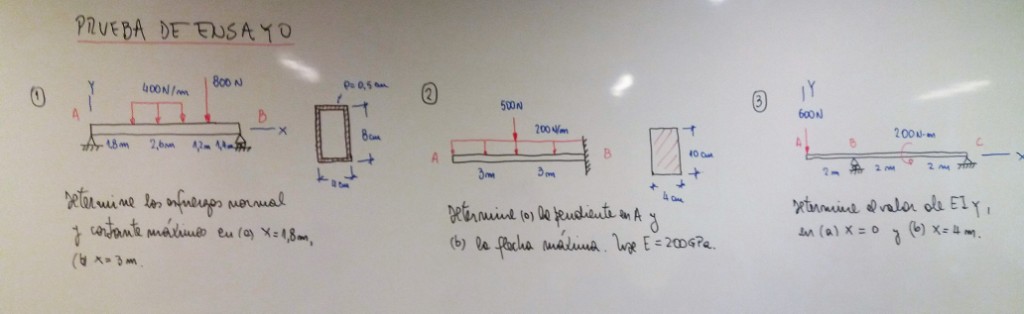 PRUEBA DE ENSAYO
1
Y
A
400N/m
800N
B
x
1,8m 2,6m 1,2m 1,4m
P=0,5cm
8cm
4cm
Determine los esfuerzos normal
y cortante máximos en (a) x=1,8m,
(b) x=3m.
2
500N
200N/m
A
B
3m 3m
10cm
4cm
Determine (a) la pendiente en A y
(b) la flecha máxima. Use E=200GPa.
3
Y
600N
A
B
200N-m
C
x
2m 2m 2m
Determine el valor de EIy,
en (a) x=0 y (b) x=4m.